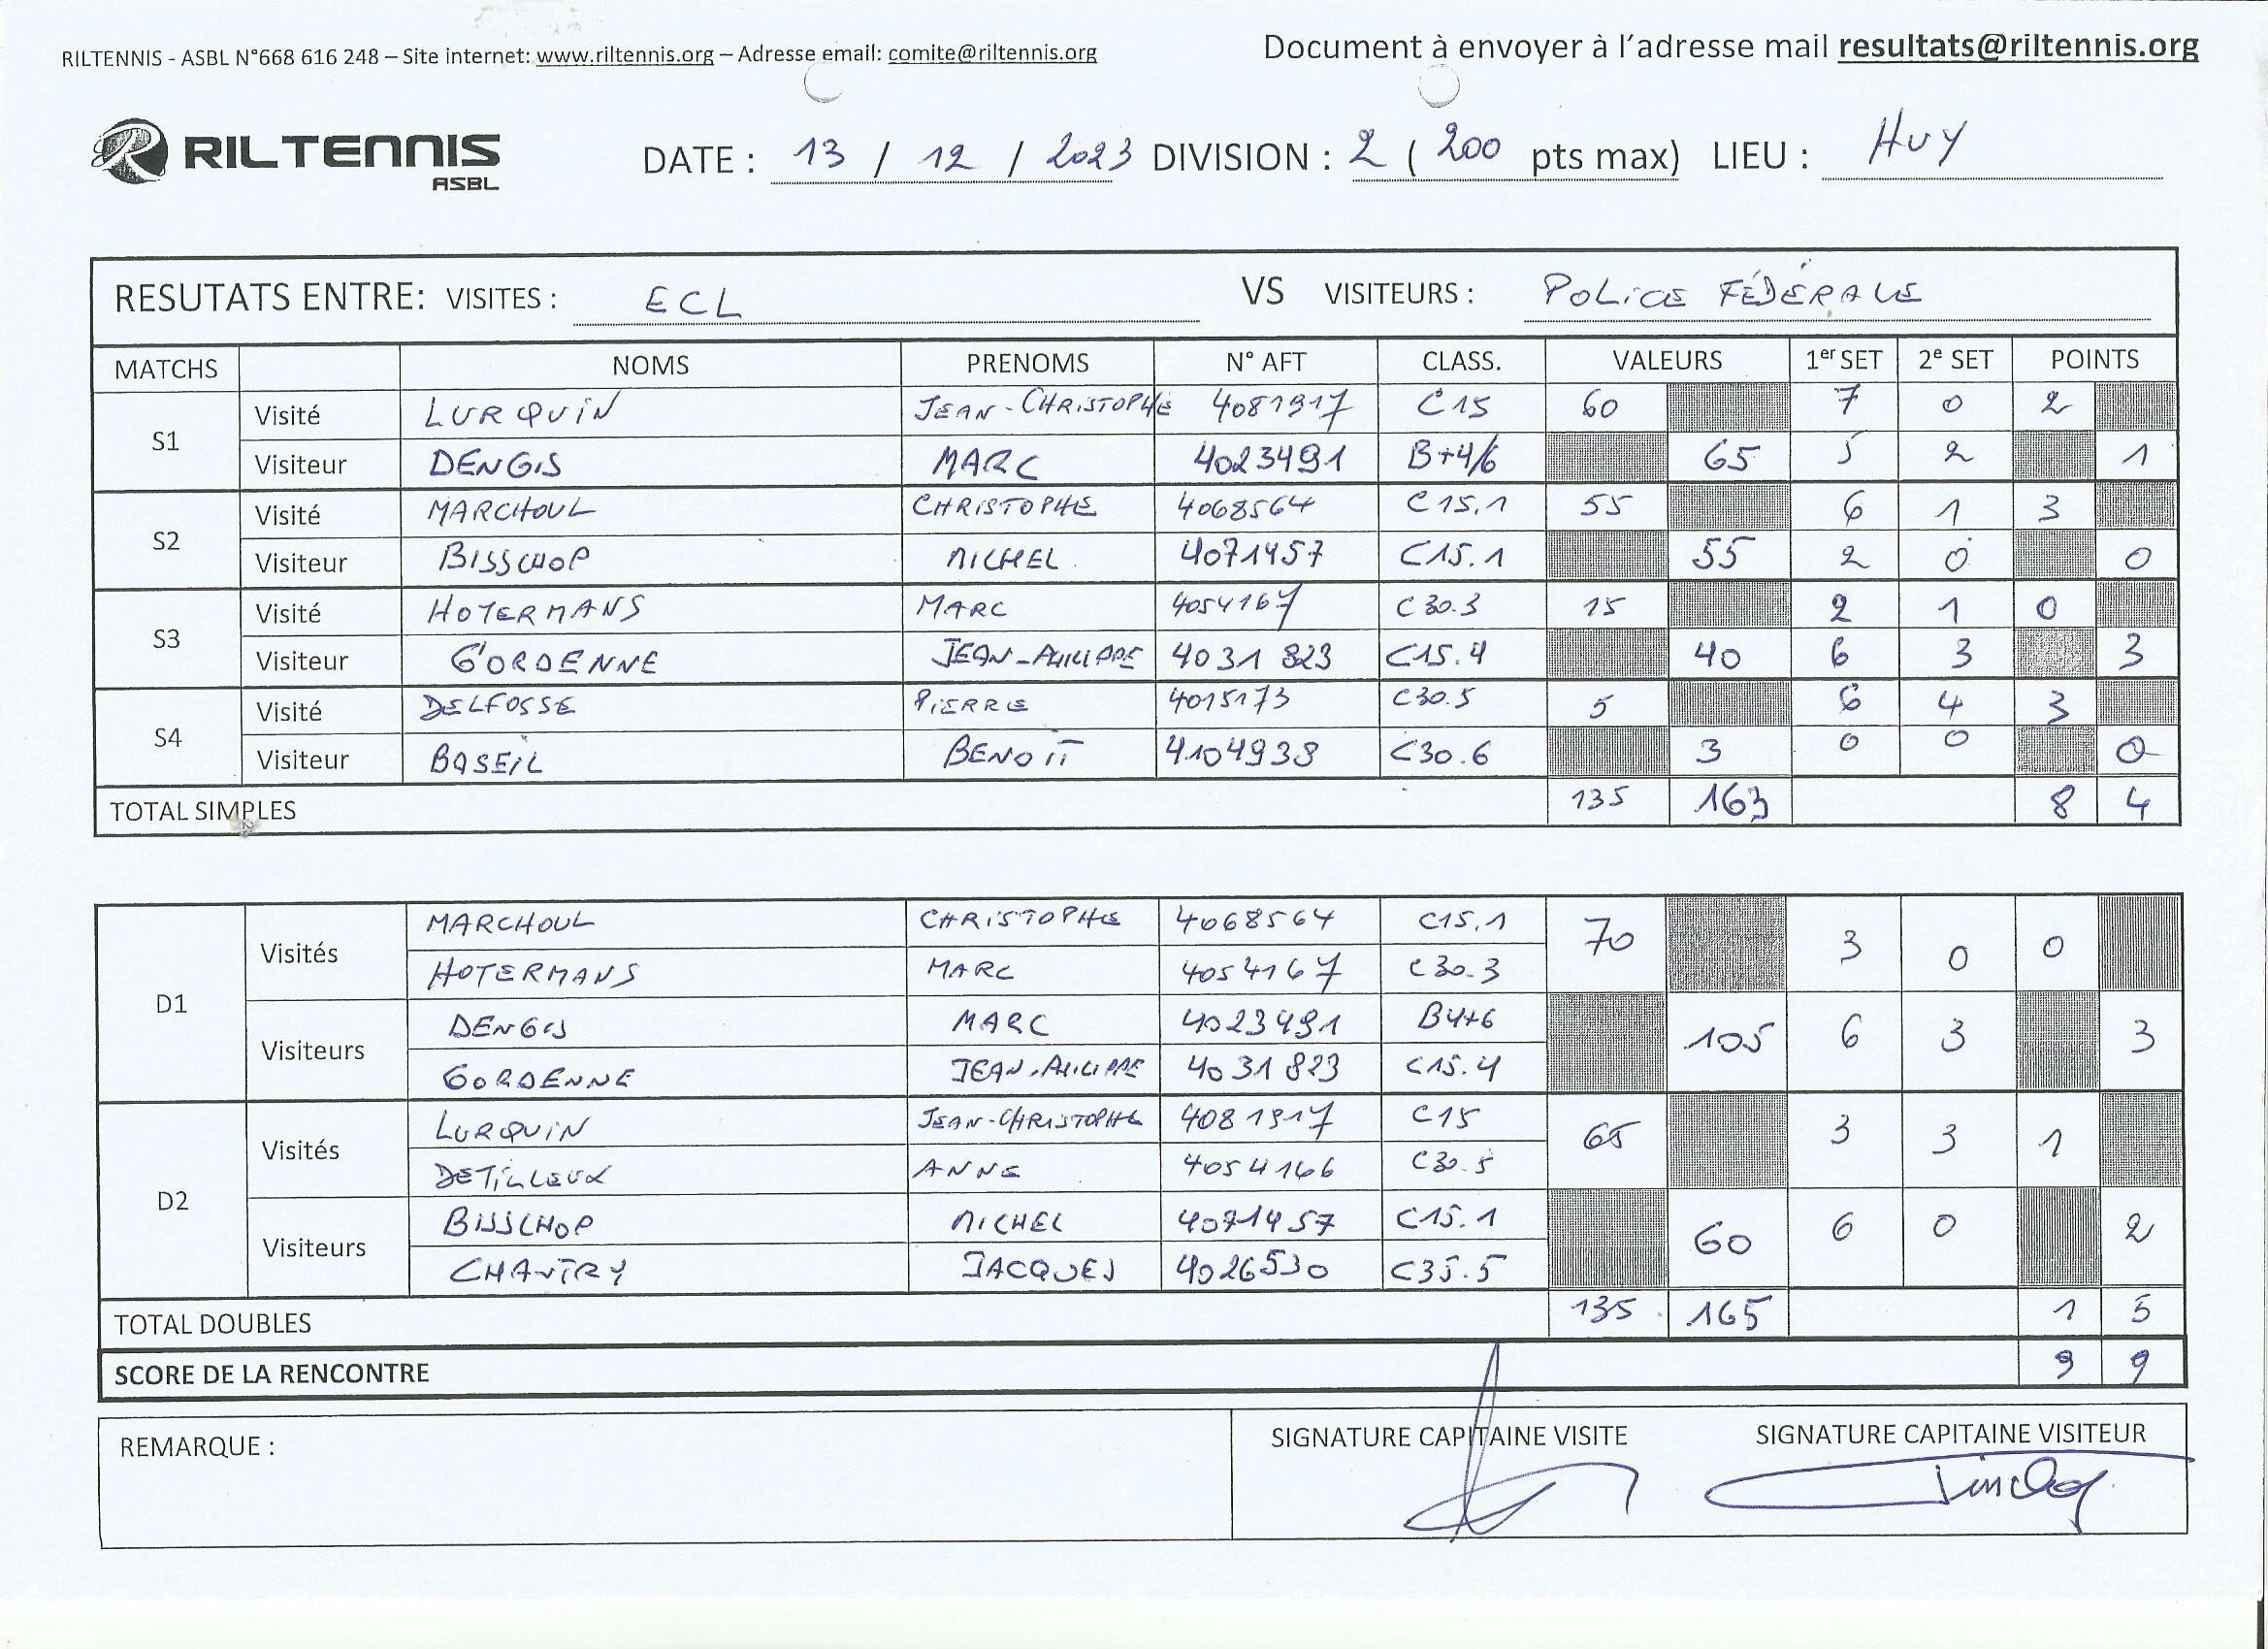 RILTENNIS - ASBL N°668 616 248 – Site internet: www.riltennis.org – Adresse email: comite@riltennis.org
Document à envoyer à l'adresse mail resultats@riltennis.org
RILTENNIS ASBL
DATE : 13 / 12 / 2023 DIVISION : 2 ( 200 pts max) LIEU : HUY
RESUTATS ENTRE: VISITES : ECL VS VISITEURS : POLICE FÉDÉRALE
MATCHS NOMS PRENOMS N° AFT CLASS. VALEURS 1er SET 2e SET POINTS
S1
Visité LURQUIN JEAN-CHRISTOPHE 4081917 C15 60 7 0 2
Visiteur DENGIS MARC 4023491 B+4/6 65 5 2 1
S2
Visité MARCHOUL CHRISTOPHE 4068564 C15.1 55 6 1 3
Visiteur BISSCHOP MICHEL 4071457 C15.1 55 2 0 0
S3
Visité HOTERMANS MARC 4054167 C30.3 15 2 1 0
Visiteur GORDENNE JEAN-PHILIPPE 4031823 C15.4 40 6 3 3
S4
Visité DELFOSSE PIERRE 4015173 C30.5 5 6 4 3
Visiteur BASEIL BENOIT 4104938 C30.6 3 0 0 0
TOTAL SIMPLES 135 163 8 4
D1
Visités
MARCHOUL CHRISTOPHE 4068564 C15.1 70 3 0 0
HOTERMANS MARC 4054167 C30.3
Visiteurs
DENGIS MARC 4023491 B4+6 105 6 3 3
GORDENNE JEAN-PHILIPPE 4031823 C15.4
D2
Visités
LURQUIN JEAN-CHRISTOPHE 4081917 C15 65 3 3 1
DETILLEUX ANNE 4054166 C30.5
Visiteurs
BISSCHOP MICHEL 4071457 C15.1 60 6 0 2
CHANTRY JACQUES 4026530 C35.5
TOTAL DOUBLES 135 165 1 5
SCORE DE LA RENCONTRE 9 9
REMARQUE :
SIGNATURE CAPITAINE VISITE SIGNATURE CAPITAINE VISITEUR